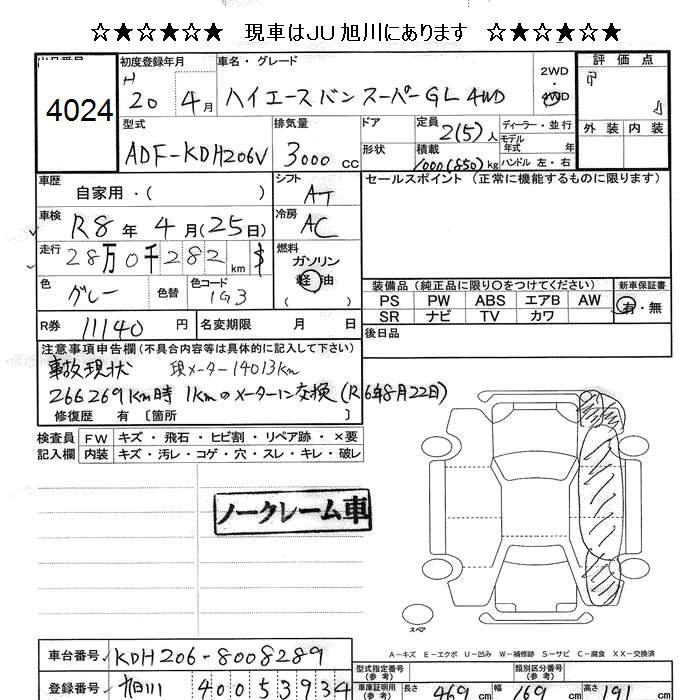 ☆★☆★☆★ 現車はJU旭川にあります ☆★☆★☆★
4024
初度登録年月 車名・グレード 2WD・4WD 評価点
H20年4月 ハイエースバンスーパーGL 4WD
外装 内装
型式 排気量 ドア 定員 2(5)人 ディーラー・並行
ADF-KDH206V 3000cc 形状 積載 1000(850)kg モデル年式 年
ハンドル 左・右
車歴 自家用・( ) シフト AT セールスポイント (正常に機能するものに限ります)
車検 R8年4月(25日) 冷房 AC
走行 28万0千282km 燃料 ガソリン 軽油 ( )
色 グレー 色替 色コード 1G3
装備品 (純正品に限り○をつけてください) 新車保証書
PS PW ABS エアB AW 有・無
SR ナビ TV カワ
R券 11140円 名変期限 月 日 後日品
注意事項申告欄 (不具合内容等は具体的に記入して下さい)
事故現状 現メーター14013km
266269km時 1kmのメーターに交換(R6年8月22日)
修復歴 有 〔箇所 〕
検査員記入欄 FW キズ・飛石・ヒビ割・リペア跡・×要
内装 キズ・汚レ・コゲ・穴・スレ・キレ・破レ
ノークレーム車
スペア
A-キズ E-エクボ U-凹み W-補修跡 S-サビ C-腐食 XX-交換済
車台番号 KDH206-8008289 型式指定番号(参考) 類別区分番号(参考)
登録番号 旭川 400 5 3934 車庫証明用(参考) 長さ 469cm 幅 169cm 高さ 191cm